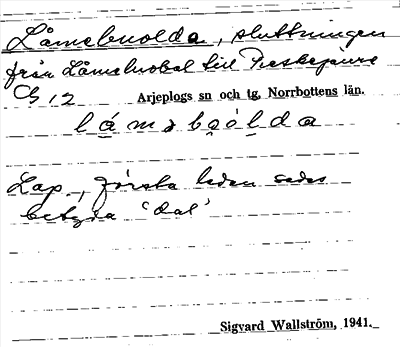 Låmebuolda, sluttningen
från Låmebuolda till Pieskejaure
C5 12 Arjeplogs sn och tg, Norrbottens län.
låməbŏl̥da
Lap., första leden sades
betyda 'dal'
Sigvard Wallström, 1941.